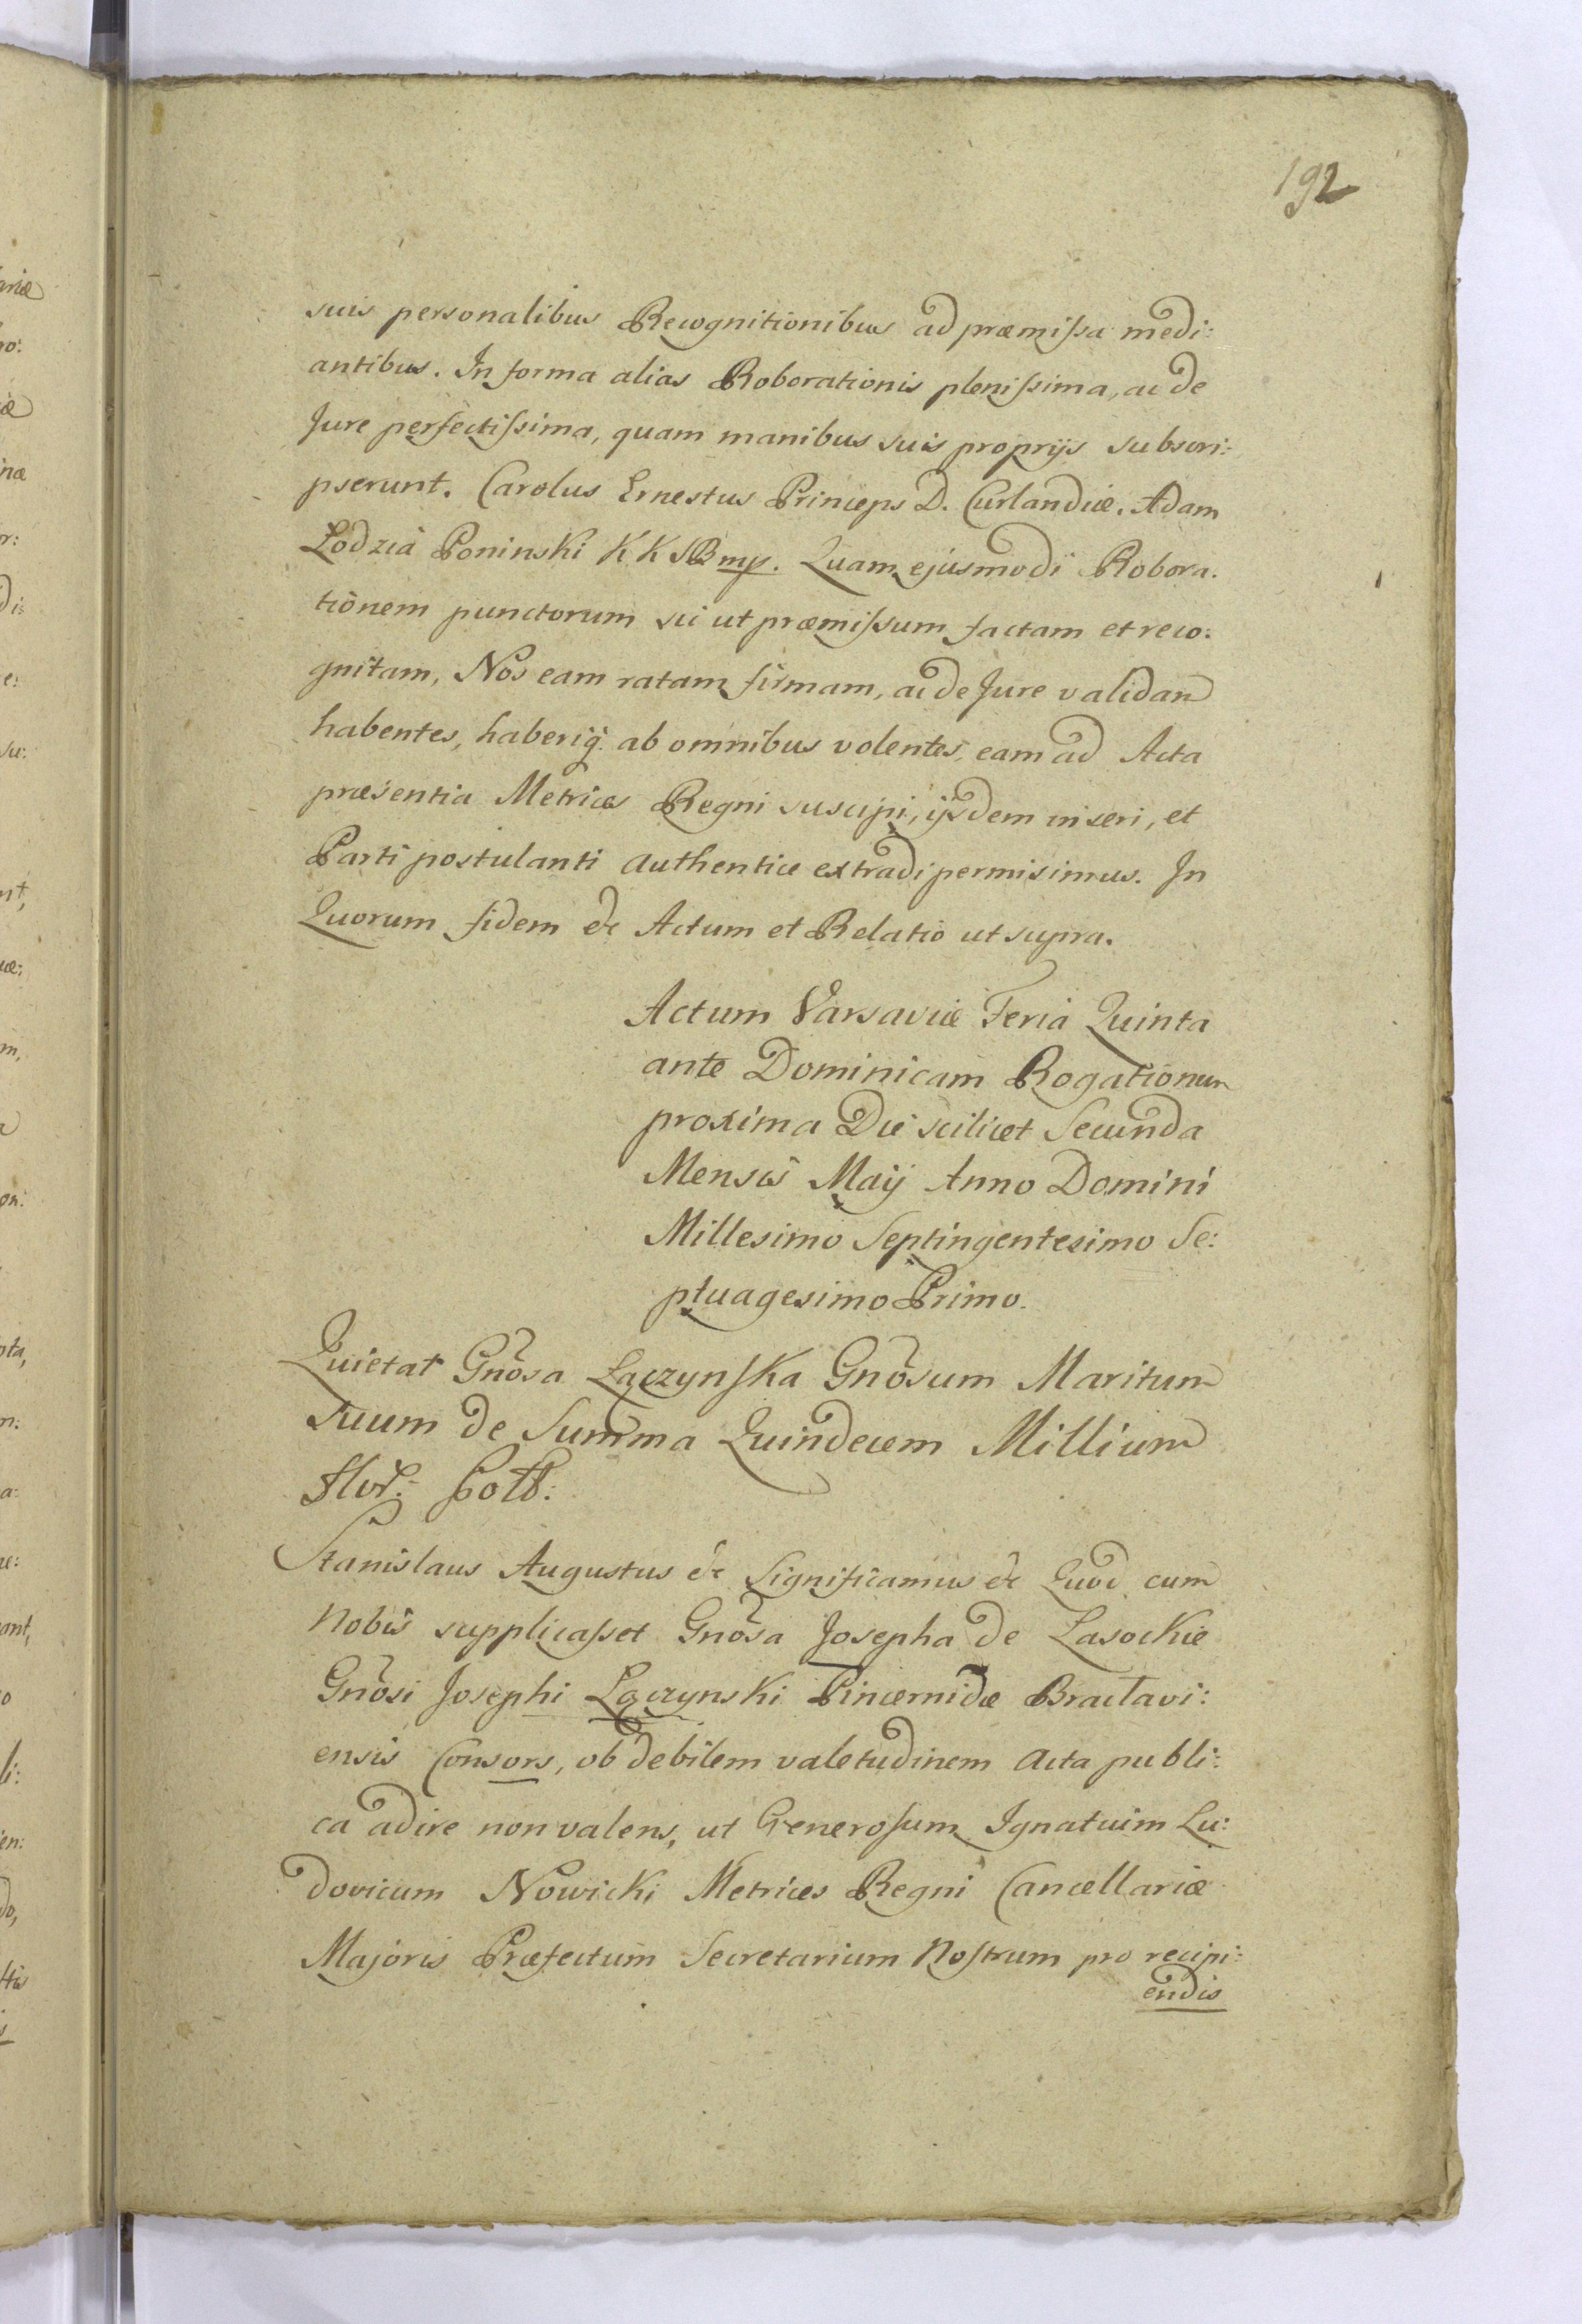 192
suis personalibus Recognitionibus ad præmissa medi:
antibus. In forma alias Roborationis plenissima, ac de
Jure perfectissima, quam manibus suis proprijs subscri:
pserunt. Carolus Ernestus Princeps D. Curlandiæ. Adam
Lodzia Poninski KK mp. Quam ejusmodi Robora.
tionem punctorum sic ut præmissum factam et reco:
gnitam, Nos eam ratam firmam, ac de Jure validam
habentes, haberiq. ab omnibus volentes, eam ad Acta
præsentia Metrices Regni suscipi, ijsdem inseri, et
Parti postulanti authentice extradi permisimus. In
Quorum fidem &c Actum et Relatio ut supra.
Actum Varsaviæ Feria Quinta
ante Dominicam Rogationum
proxima Die scilicet Secunda
Mensis Maij Anno Domini
Millesimo Septingentesimo Se:
ptuagesimo Primo.
Quietat Gnosa Łączynska Gnosum Maritum
Suum de Summa Quindecem Millium
Flor: Poll:
Stanislaus Augustus &c Significamus &c Quod cum
Nobis supplicasset Gnosa Josepha de Lasockie
Gnosi Josephi Łączynski Pincernidæ Braclavi:
ensis Consors, ob debilem valetudinem Acta publi:
ca adire non valens, ut Generosum Ignatium Lu:
dovicum Nowicki Metrices Regni Cancellariæ
Majoris Præfectum Secretarium Nostrum pro recipi:
endis